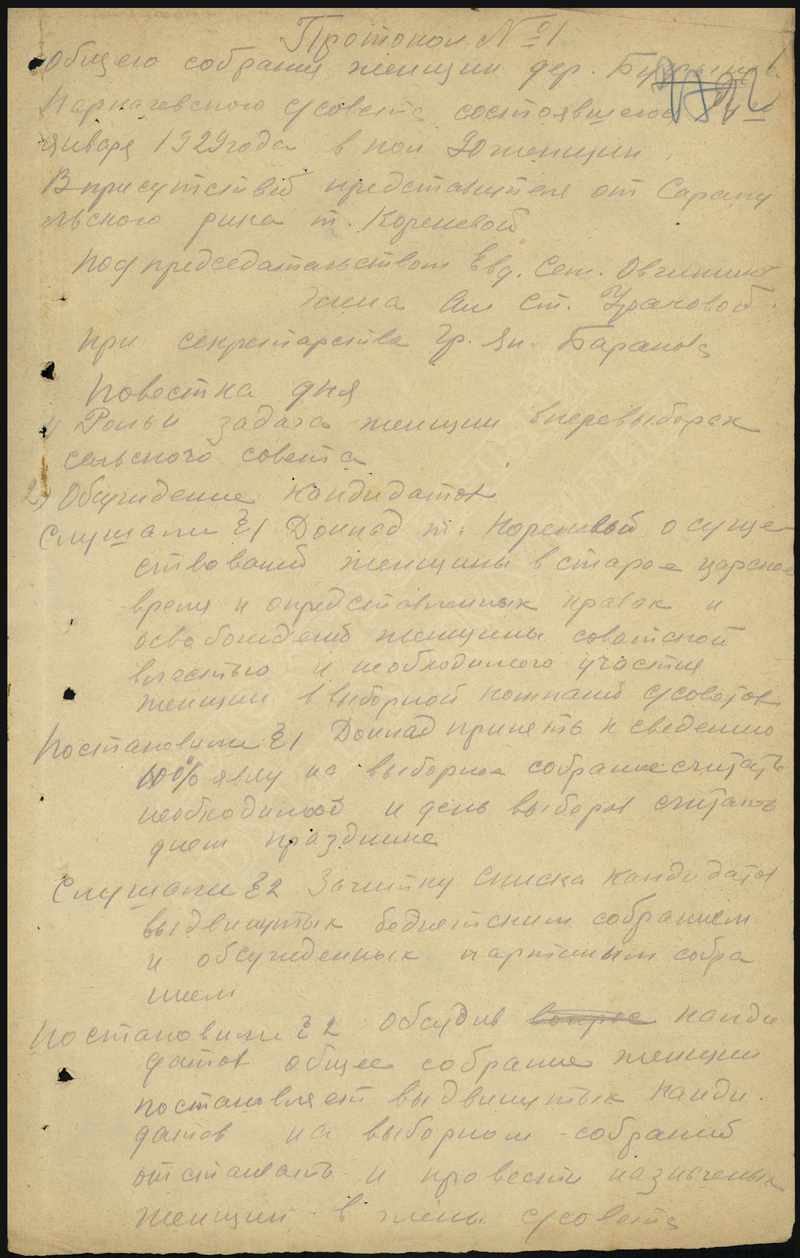 Протокол №1
Общего собрания женщин дер.
с/совета состоявшегося
января 1929 года в кол женщин.
В присутствий представителя от Сарапу
льского рика т. Кореневой
под председательством Евд. Сем.
Ст.
при секретарства Гр. Ян. Баранов
повестка дня
1) Роль и задача женщин в перевыборах
сельского совета
2) Обсуждение кандидатов
Слушали §1 Доклад т. Кореневой о суще
ствований женщины в старое царское
время и о представленных правах и
освобождений женщины советской
властью и необходимого участия
женщин в выборной компаний с/советов
Постановили §1 Доклад принять к сведению
100% явку на выборное собрание считать
необходимой и день выборов считать
днем праздника
Слушали §2 Зачитку списка кандидатов
выдвинутых бедняцким собранием
и обсужденных партийным собра
нием
Постановили §2 Обсудив вопрос канди
датов общее собрание женщин
постановляет выдвинутых канди
датов на выборном собраний
отстаивать и провести назначеных
женщин в члены с/совета